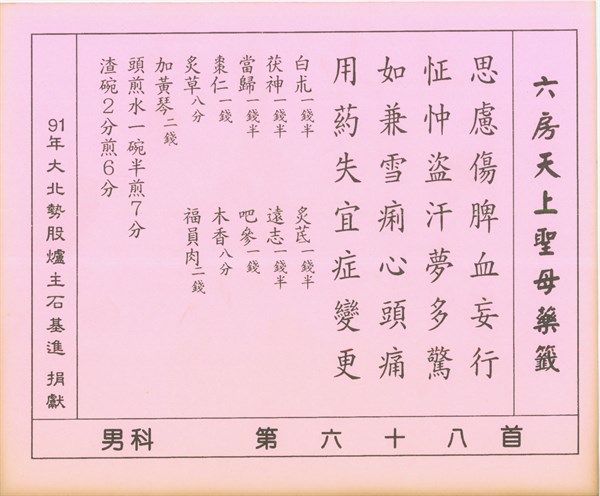 六房天上聖母藥籤
思慮傷脾血妄行
怔忡盜汗夢多驚
如兼雪痢心頭痛
用葯失宜症變更
白朮一錢半 炙芪一錢半
茯神一錢半 遠志一錢半
當歸一錢半 吧參一錢
棗仁一錢 木香八分
炙草八分 福員肉二錢
加黃琴二錢
頭煎水一碗半煎7分
渣碗2分煎6分
91年大北勢股爐主石基進 捐獻
男科 第六十八首